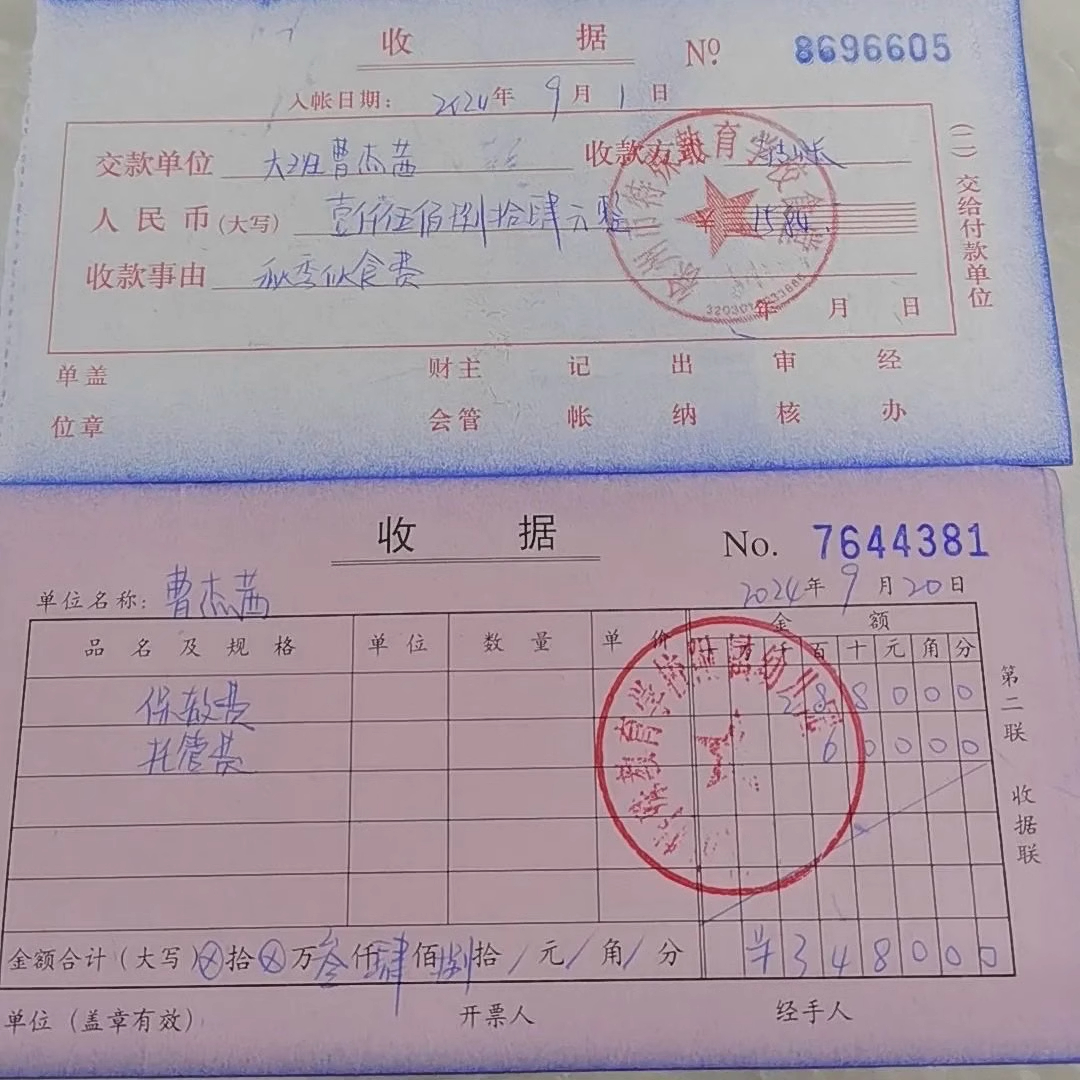 收 据 Nº 8696605
入帐日期: 2024年 9月 1日
交款单位 大班曹杰茜 收款方式
人民币(大写) 壹仟伍佰捌拾肆元整 1584
收款事由 秋季伙食费
年 月 日
(二)交给付款单位
单位盖章 财会主管 记帐 出纳 审核 经办
收 据 No. 7644381
单位名称: 曹杰茜 2024年 9月 20日
品名及规格 单位 数量 单价 金额
十 万 千 百 十 元 角 分
保教费 2 8 8 0 0 0
托管费 6 0 0 0 0
金额合计(大写)⊗拾⊗万叁仟肆佰捌拾/元/角/分 ¥ 3 4 8 0 0 0
第二联 收据联
单位(盖章有效) 开票人 经手人